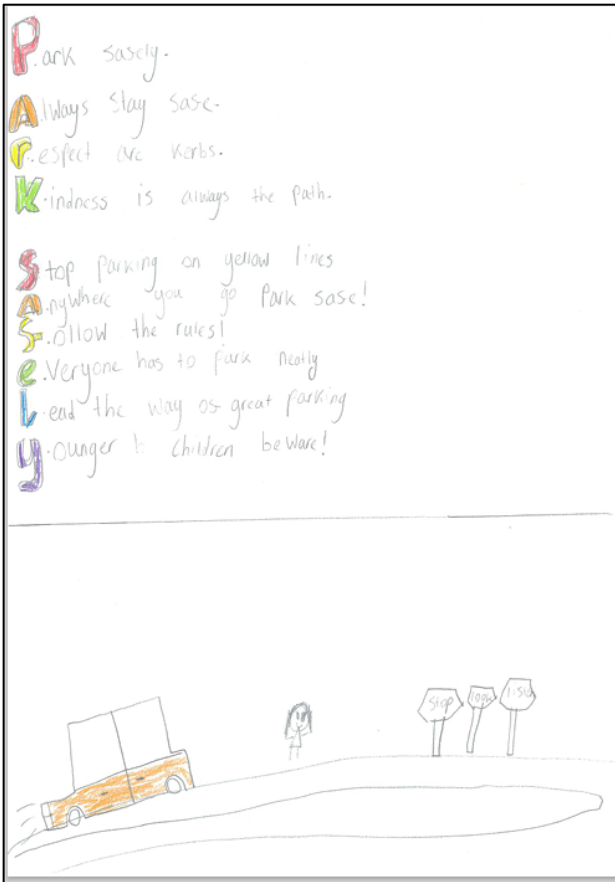 P.ark sasely.
A.lways stay sase.
r.espect are kerbs.
K.indness is always the path.
Stop parking on yellow lines
a.nywhere you go Park sase!
s.ollow the rules!
e.veryone has to park neatly
L.ead the way os great parking
y.ounger children beware!
Stop look